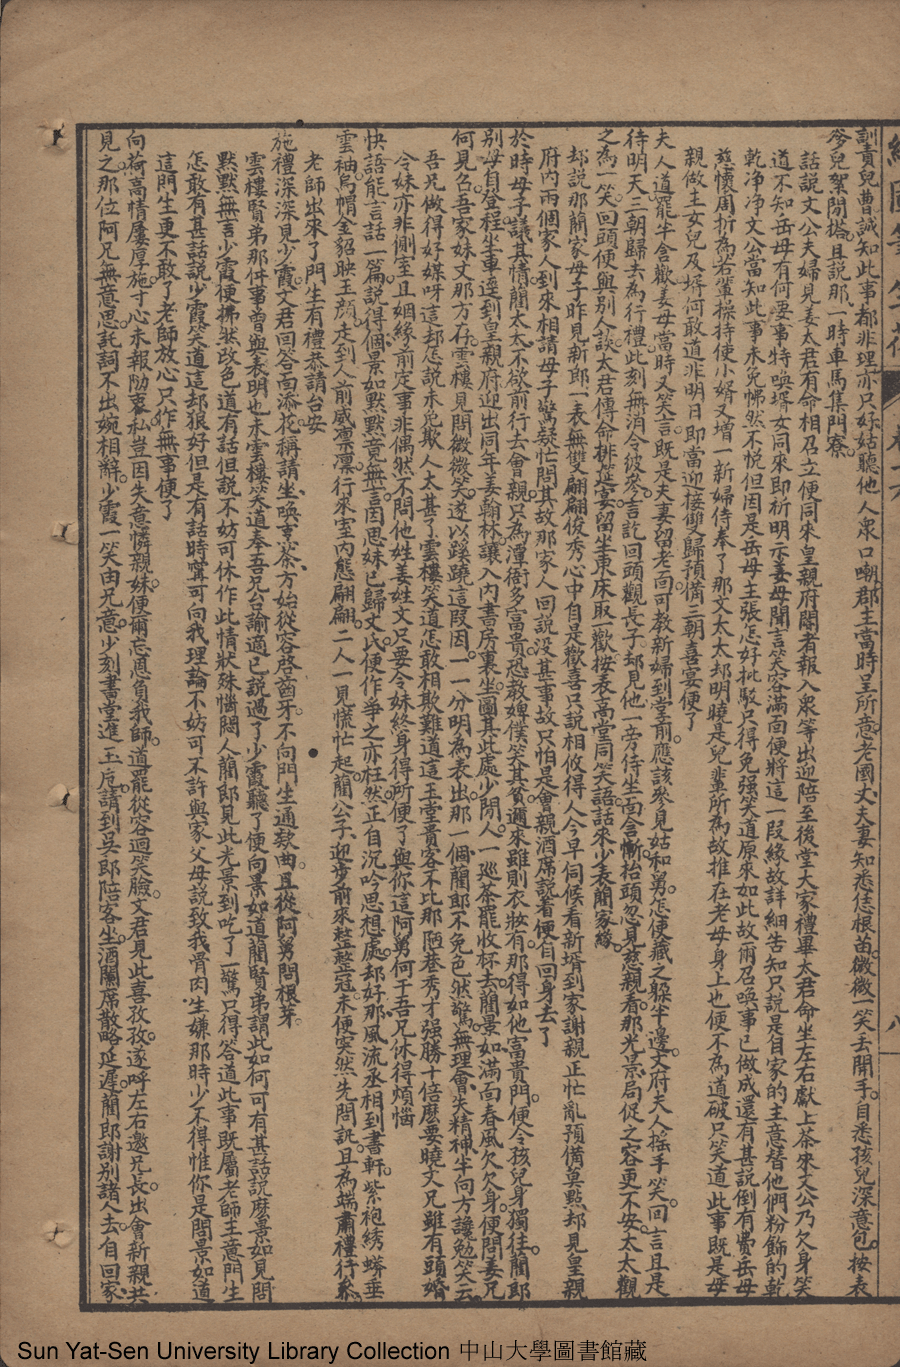 訓責兒曹誠知此事都非理亦只好姑聽他人衆口嘲郡主當時呈所意老國丈夫妻知悉恁根苗微微一笑丟開手自悉孩兒深意包按表
爹兒絮閒搭且說那一時車馬集門寮
話說文公夫婦見姜太君有命相召立便同來皇親府閽者報入衆等出迎陪至後堂大家禮畢太君命坐左右獻上茶來文公乃欠身笑
道不知岳母有何要事特喚壻女同來即祈明示姜母聞言笑容滿面便將這一段緣故詳細告知只說是自家的主意替他們粉飾的乾
乾净净文公當知此事未免怫然不悅但因是岳母主張怎好批駁只得免强笑道原來如此故爾召喚事已做成還有甚說倒有費岳母
慈懷周折為若輩操持使小婿又增一新婦侍奉了那文太太却明曉是兒輩所為故推在老母身上也便不為道破只笑道此事既是母
親做主女兒及壻何敢道非明日即當迎接雙歸預備三朝喜宴便了
夫人道罷半含歡姜母當時又笑言既是夫妻留老面可教新婦到堂前應該參見姑和舅怎便藏之躲半邊文府夫人搖手笑回言且是
待明天三朝歸去為行禮此刻無消令彼參言訖回頭觀長子却見他一旁侍坐面含慚抬頭忽見慈親看那光景局促之容更不安太太觀
之為一笑回頭便與別人談太君傳命排筵宴留坐東床取一歡按表高堂同笑語話來少表藺家緣
却說那藺家母子昨見新郎一表無雙翩翩俊秀心中自是歡喜只說相攸得人今早伺候看新壻到家謝親正忙亂預備奠點却見皇親
府内兩個家人到來相請母子驚疑忙問其故那家人回說没甚事故只怕是會親酒席說着便自回身去了
於時母子議其情藺太太不欲前行去會親只為潭衙多富貴恐教婢僕笑其貧邇來雖則衣妝有那得如他富貴門便令孩兒身獨往藺郎
別母自登程坐車逕到皇親府迎出同年姜翰林讓入内書房裏坐圖其此處少閒人一巡茶罷收杯去藺景如滿面春風欠欠身便問姜兄
何見召吾家妹丈那方存雲樓見問微微笑遂以蹊蹺這段因一一分明為表出那一個藺郎不免色然驚無理會失精神半向方讒勉笑云
吾兄做得好媒呀這却怎說未免欺人太甚了雲樓笑道怎敢相欺難道這玉堂貴客不比那陋巷秀才强勝十倍麼要曉丈兄雖有頭婚
今妹亦非側室且姻緣前定事非偶然不問他姓姜姓文只要令妹終身得所便了與你這阿舅何干吾兄休得煩惱
快語能言話一篇說得個景如默默竟無言因思妹已歸文氏便作爭之亦枉然正自沉吟思想處却好那風流丞相到書軒紫袍绣蟒垂
雲袖烏帽金貂映玉顔走到人前威凛凛行來室内態翩翩二人一見慌忙起藺公子迎步前來整整冠未便突然先問訊且為端肅禮行恭
老師出來了門生有禮恭請台安
施禮深深見少霞文君回答面添花稱請坐喚烹茶方始從容啓齒牙不向門生通欵曲且從阿舅問根芽
雲樓賢弟那件事曾與表明也未雲樓笑道奉吾兄台諭適已說過了少霞聽了便向景如道藺賢弟謂此如何可有甚話說麼景如見問
默默無言少霞便拂然改色道有話但說不妨可休作此情狀殊惱悶人藺郎見此光景到吃了一驚只得答道此事既屬老師主意門生
怎敢有甚話說少霞笑道這却狠好但是有話時儘可向我理論不妨可不許與家父母說致我骨肉生嫌那時少不得惟你是問景如道
這門生更不敢了老師放心只作無事便了
向荷高情屢厚施寸心未報劻衷私豈因失意憐親妹便爾忘恩負我師道罷從容迴笑臉文君見此喜孜孜遂呼左右邀兄長出會新親共
見之那位阿兄無意思託詞不出婉相辭少霞一笑由兄意少刻書堂進玉卮請到吳郎陪客坐酒闌席散略延遲藺郎謝別諸人去自回家
八
Sun Yat-Sen University Library Collection 中山大學圖書館藏